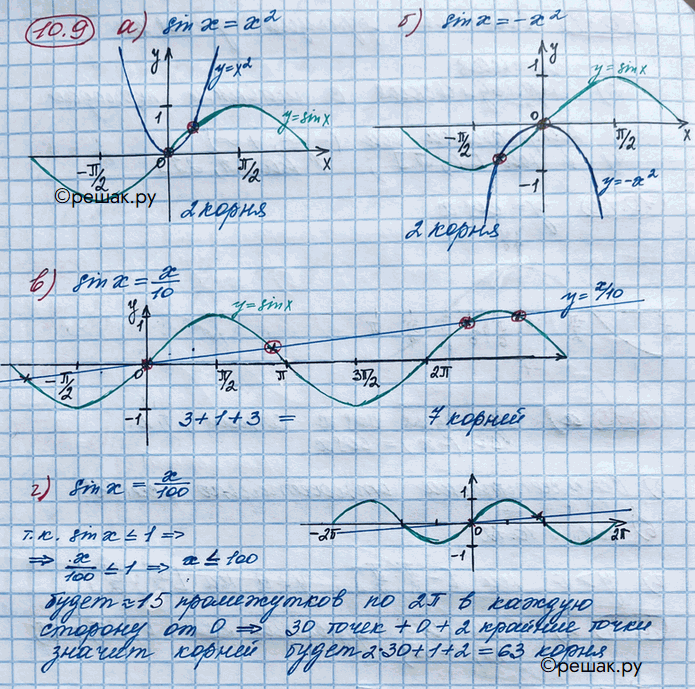 10.9 а) sin x = x² б) sin x = -x²
y y = x² 1 y = sin x 0 -π/2 π/2 x
y 1 y = sin x 0 -π/2 π/2 x -1 y = -x²
©решак.ру
2 корня
2 корня
в) sin x = x/10
y 1 y = sin x y = x/10
-π/2 0 π/2 π 3π/2 2π
-1 3+1+3 = 7 корней
г) sin x = x/100
1 -2π 0 2π -1
т.к. sin x ≤ 1 ⇒
⇒ x/100 ≤ 1 ⇒ x ≤ 100
будет ≈ 15 промежутков по 2π в каждую
сторону от 0 ⇒ 30 точек + 0 + 2 крайние точки
значит корней будет 2·30+1+2 = 63 корня
©решак.ру